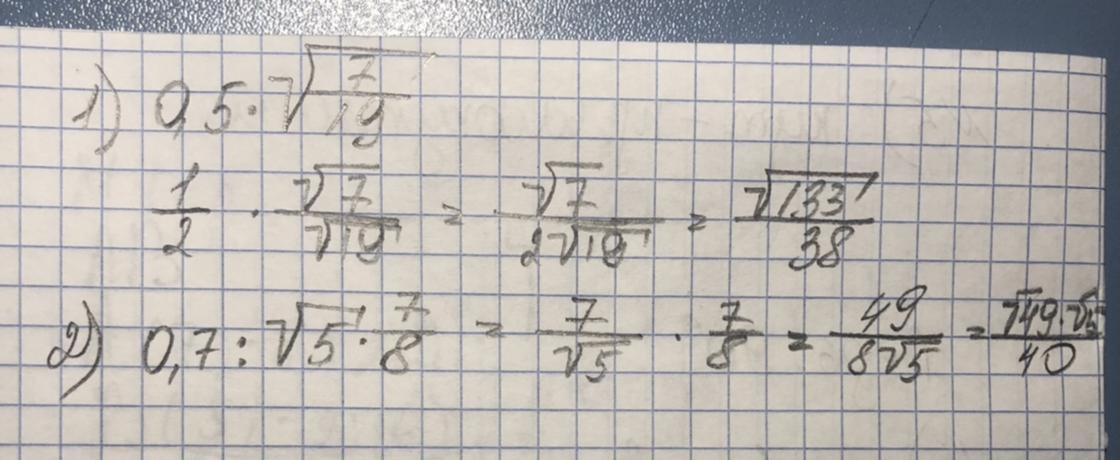 1) 0,5 · √(7/19)
1/2 · √7/√19 = √7/2√19 = √133/38
2) 0,7 : √5 · 7/8 = 7/√5 · 7/8 = 49/8√5 = √49·√5/40